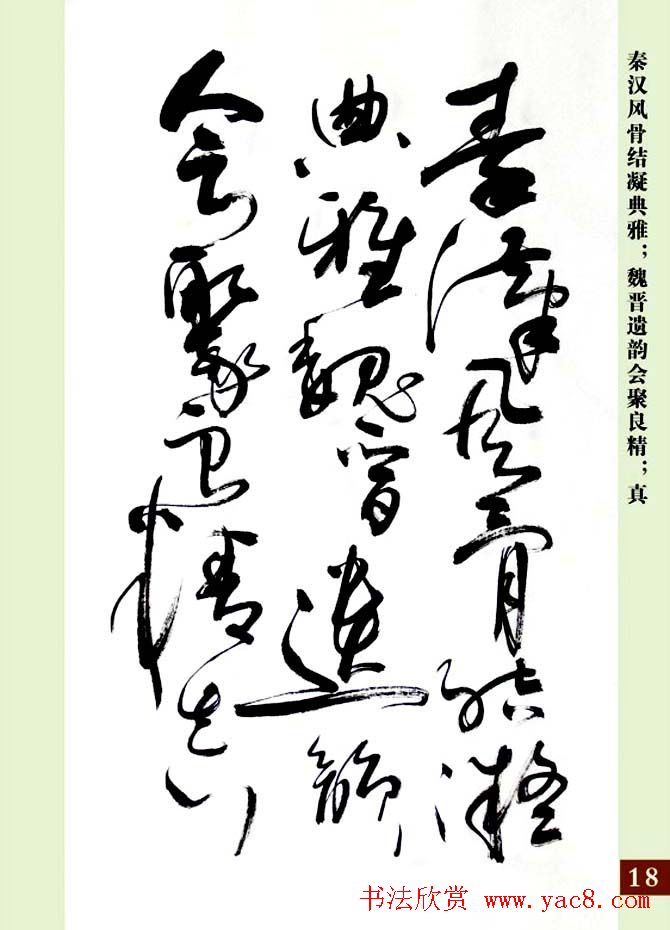 秦汉风骨结凝
典雅魏晋遗韵
会聚良精真
秦汉风骨结凝典雅；魏晋遗韵会聚良精；真
18
书法欣赏 www.yac8.com